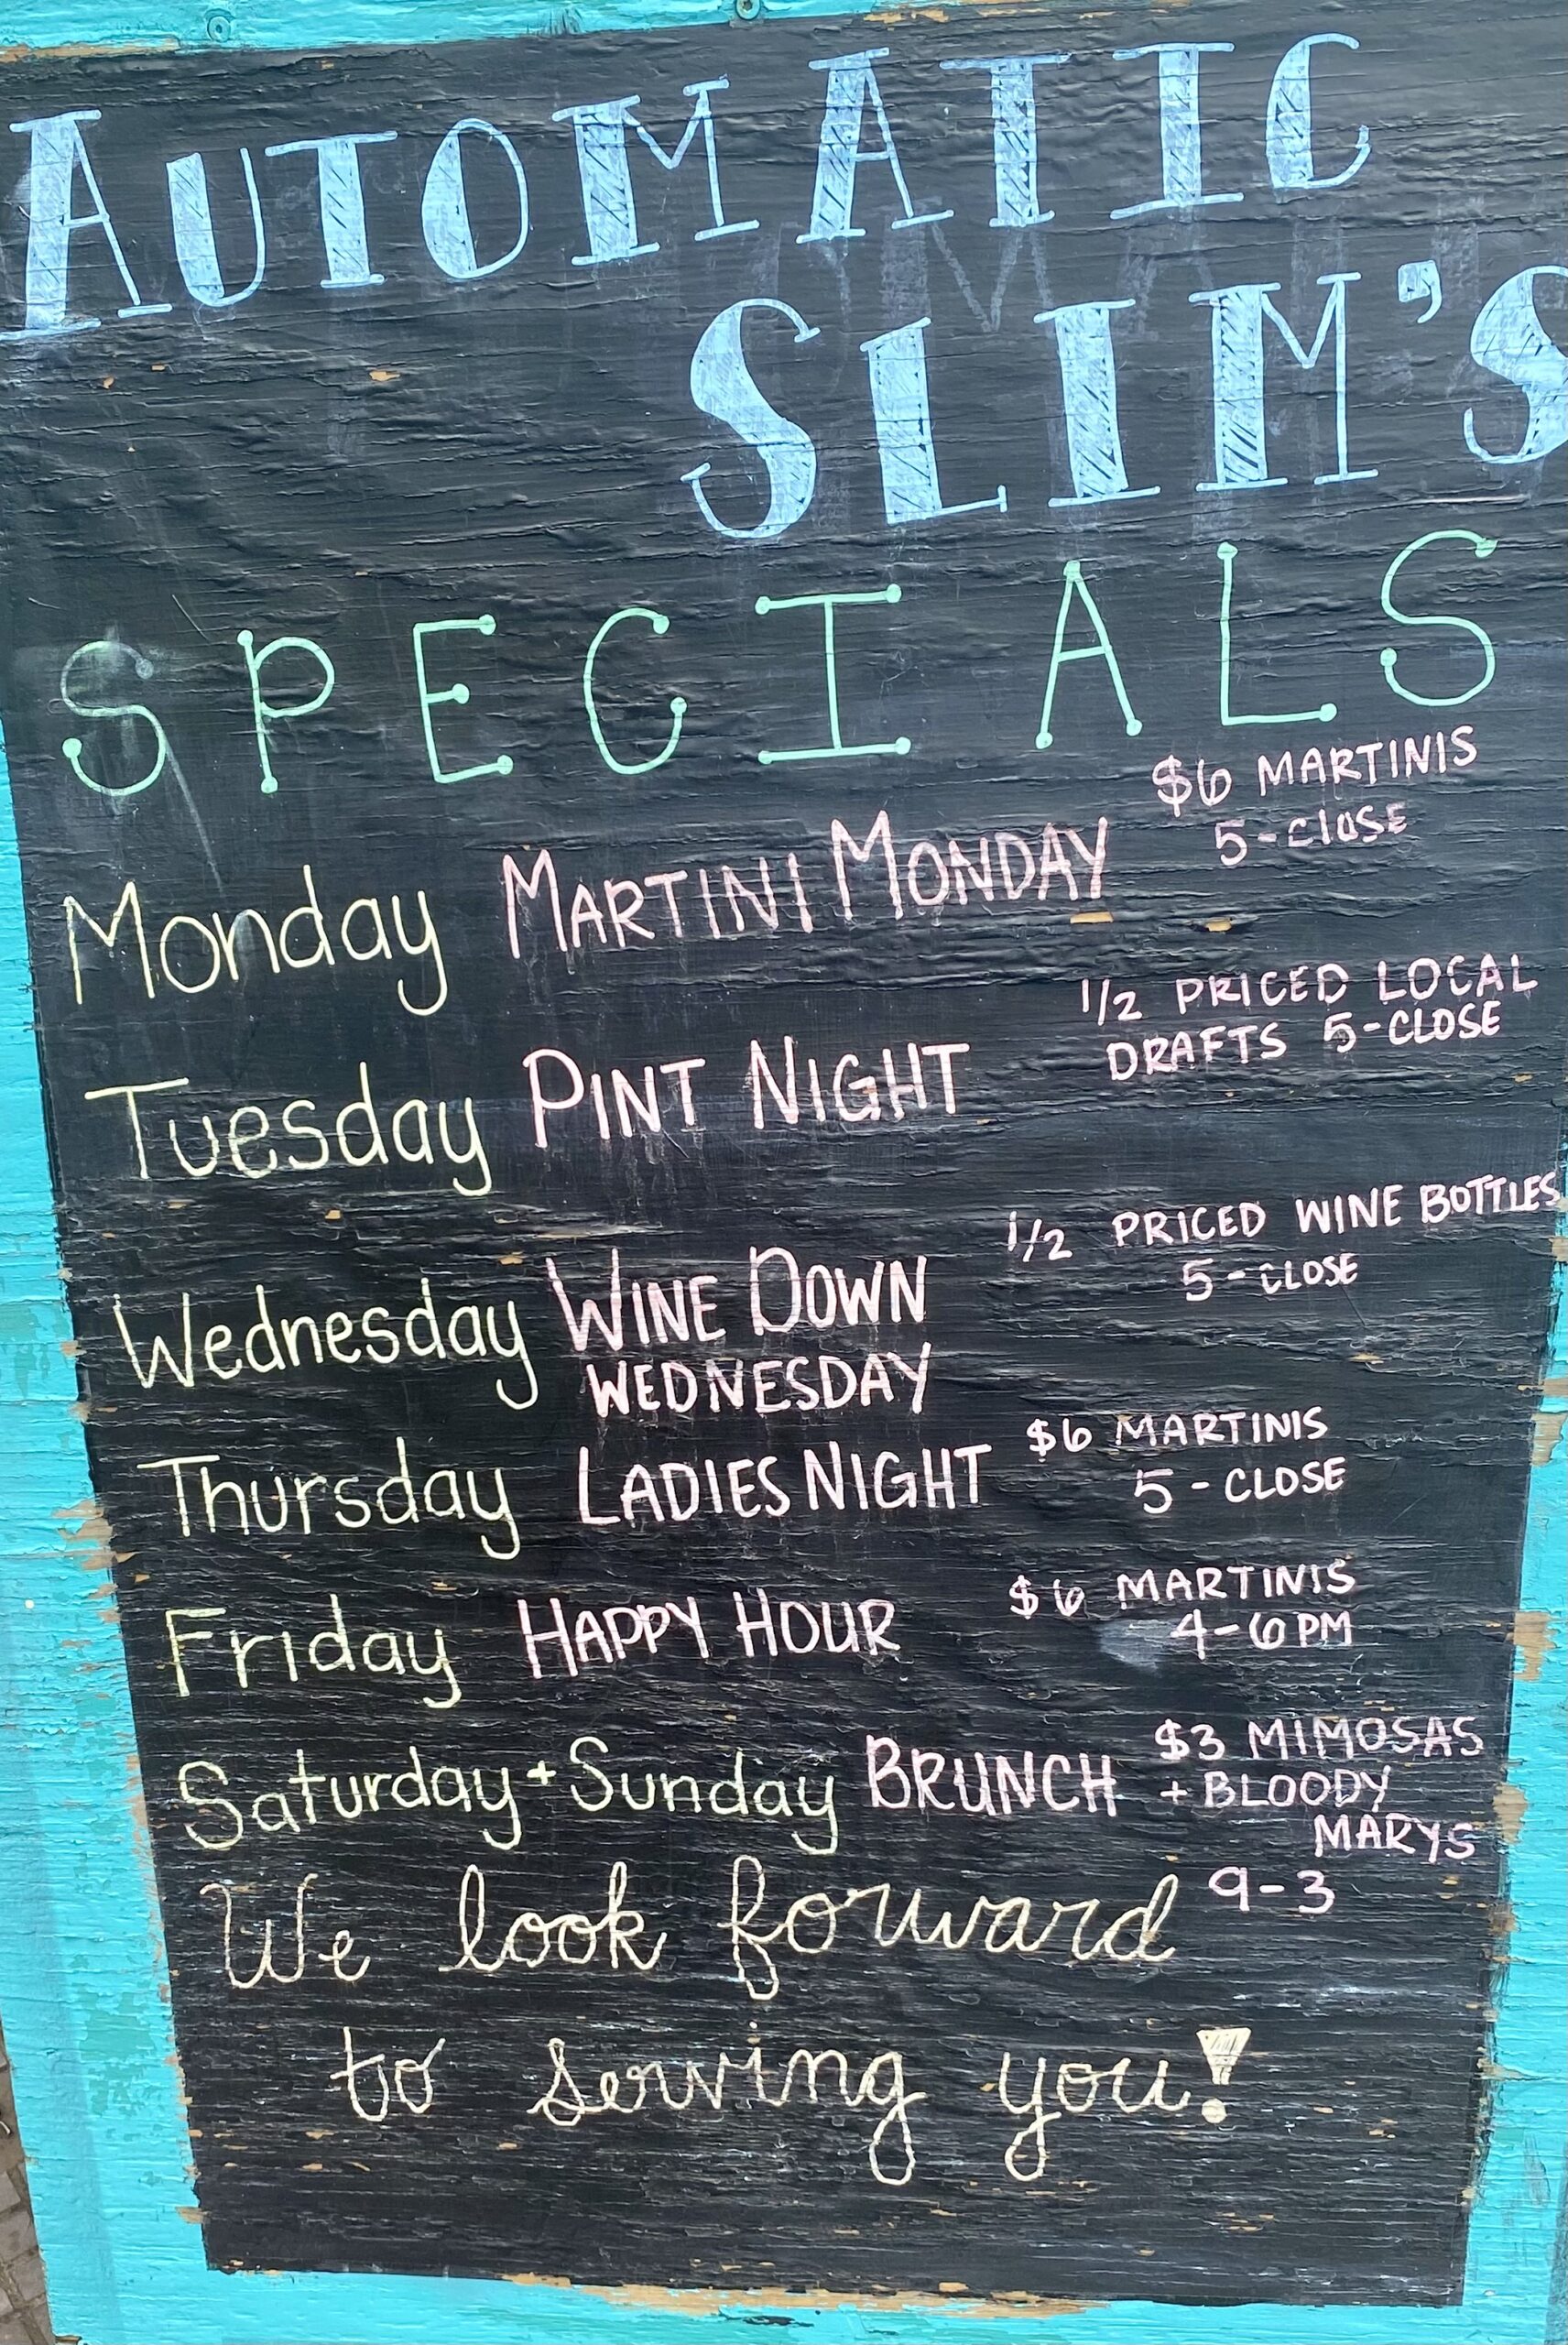 AUTOMATIC
SLIM'S
SPECIALS
Monday MARTINI MONDAY $6 MARTINIS
5-CLOSE
Tuesday PINT NIGHT 1/2 PRICED LOCAL
DRAFTS 5-CLOSE
Wednesday WINE DOWN
WEDNESDAY
1/2 PRICED WINE BOTTLES
5-CLOSE
Thursday LADIES NIGHT $6 MARTINIS
5-CLOSE
Friday HAPPY HOUR $6 MARTINIS
4-6PM
Saturday + Sunday BRUNCH $3 MIMOSAS
+ BLOODY
MARYS
9-3
We look forward
to serving you!